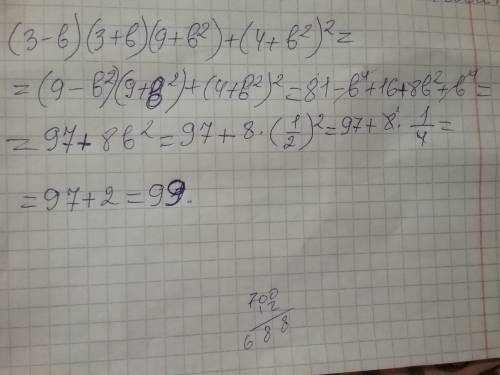 (3-в)(3+в)(9+в²)+(4+в²)²=
=(9-в²)(9+в²)+(4+в²)²=81-в⁴+16+8в²+в⁴=
=97+8в²=97+8·(1/2)²=97+8·1/4=
=97+2=99.
700
12
688